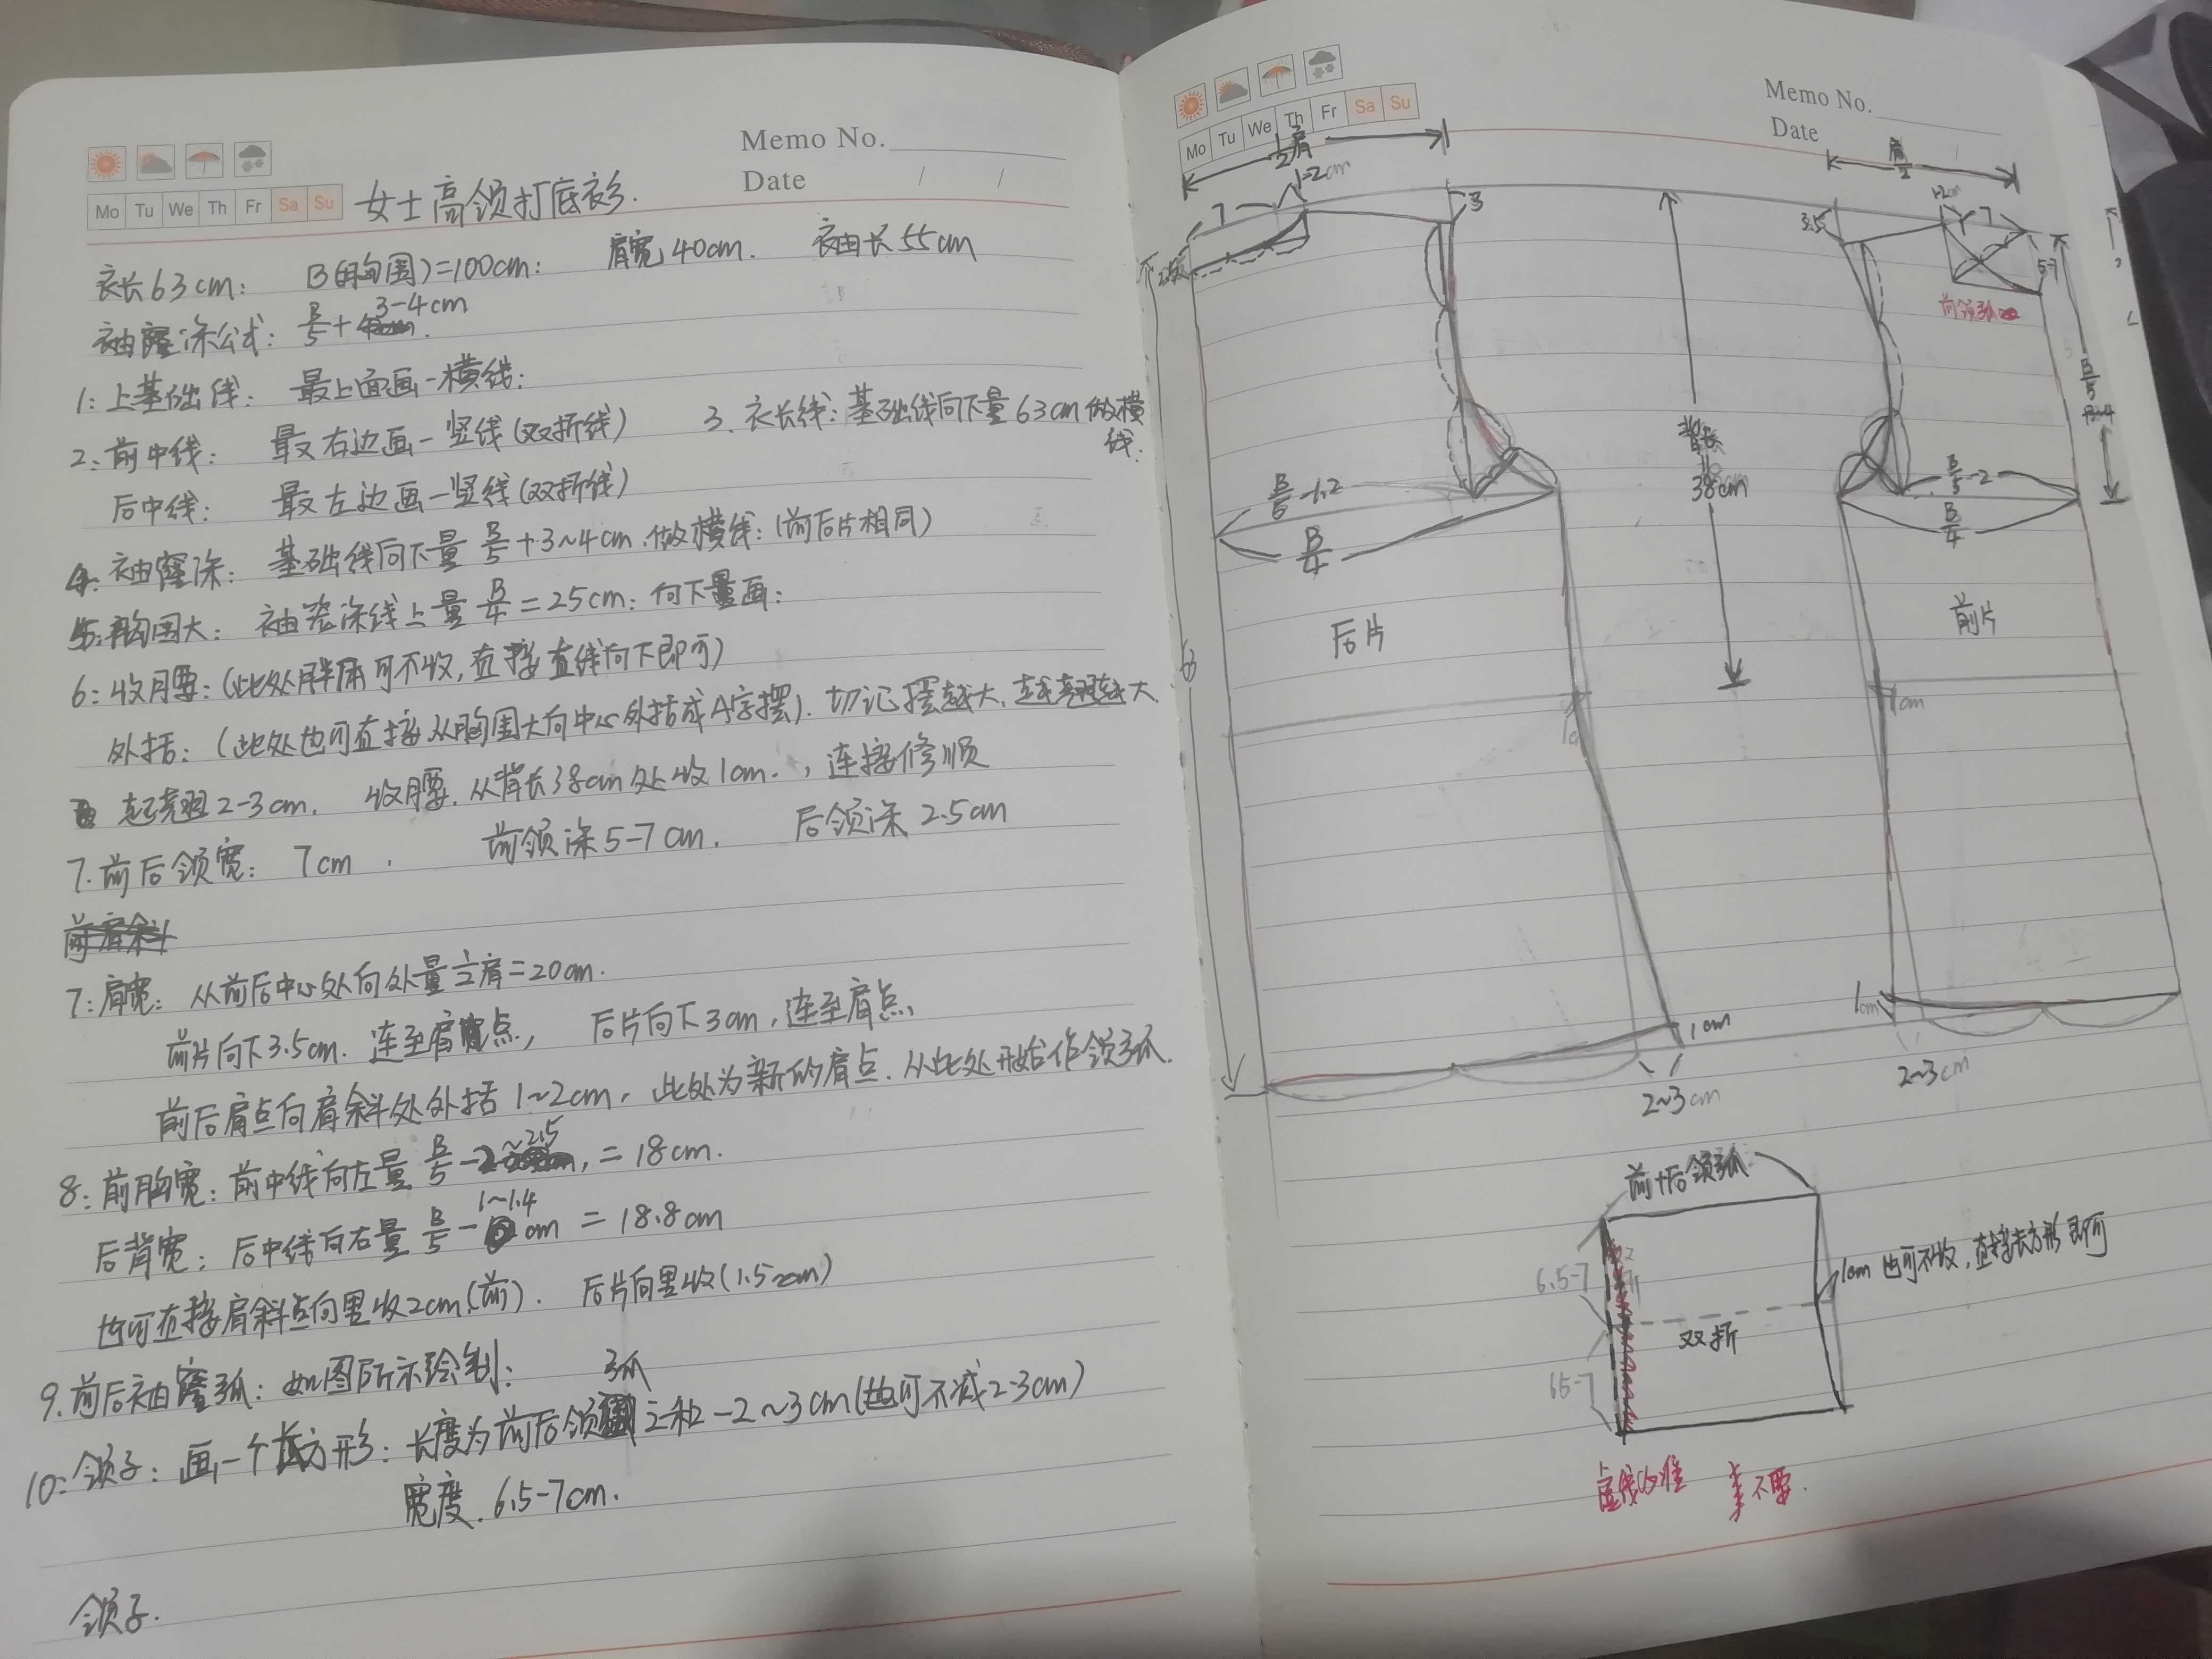 Memo No.
Date / /
Mo Tu We Th Fr Sa Su
女士高领打底衫.
衣长63cm: B(胸围)=100cm: 肩宽40cm. 袖长55cm
袖窿深公式: B/5+3-4cm
1: 上基础线: 最上面画一横线:
2: 前中线: 最右边画一竖线(双折线) 3. 衣长线: 基础线向下量63cm做横线:
后中线: 最左边画一竖线(双折线)
4: 袖窿深: 基础线向下量B/5+3~4cm.做横线:(前后片相同)
5: 胸围大: 袖窿深线上量B/4=25cm: 向下量画:
6: 收腰:(此处胖属可不收,直接直线向下即可)
外括:(此处也可直接从胸围大向中心外括成A字摆). 切记摆越大,起翘越大.
起翘2-3cm. 收腰.从背长38cm处收1cm., 连接修顺
7. 前后领宽: 7cm. 前领深5-7cm. 后领深2.5cm
前肩斜
7: 肩宽: 从前后中心处向外量1/2肩=20cm.
前片向下3.5cm. 连至肩点, 后片向下3cm,连至肩点,
前后肩点向肩斜处外括1~2cm, 此处为新的肩点.从此处开始作领弧.
8: 前胸宽: 前中线向左量B/5-2~2.5 =18cm.
后背宽: 后中线向右量B/5-1~1.4cm=18.8cm
也可直接肩斜点向里收2cm(前). 后片向里收(1.5cm)
9. 前后袖窿弧: 如图所示绘制:
10: 领子: 画一个长方形: 长度为前后领弧之和-2~3cm(也可不减2-3cm)
宽度.6.5-7cm.
领子.
Memo No.
Date
Mo Tu We Th Fr Sa Su
1/2肩
1-2cm
7
3
肩/2
1-2cm
7
3.5
5-7
前领弧
B/5
3~4
背长
38cm
B/5-1.2
B/4
B/5-2
B/4
63
后片
前片
1cm
1cm
1cm
2~3cm
1cm
2~3cm
前+后领弧
6.5-7
6.5-7
双折
1cm 也可不收,直接长方形即可
虚线收准
不要.